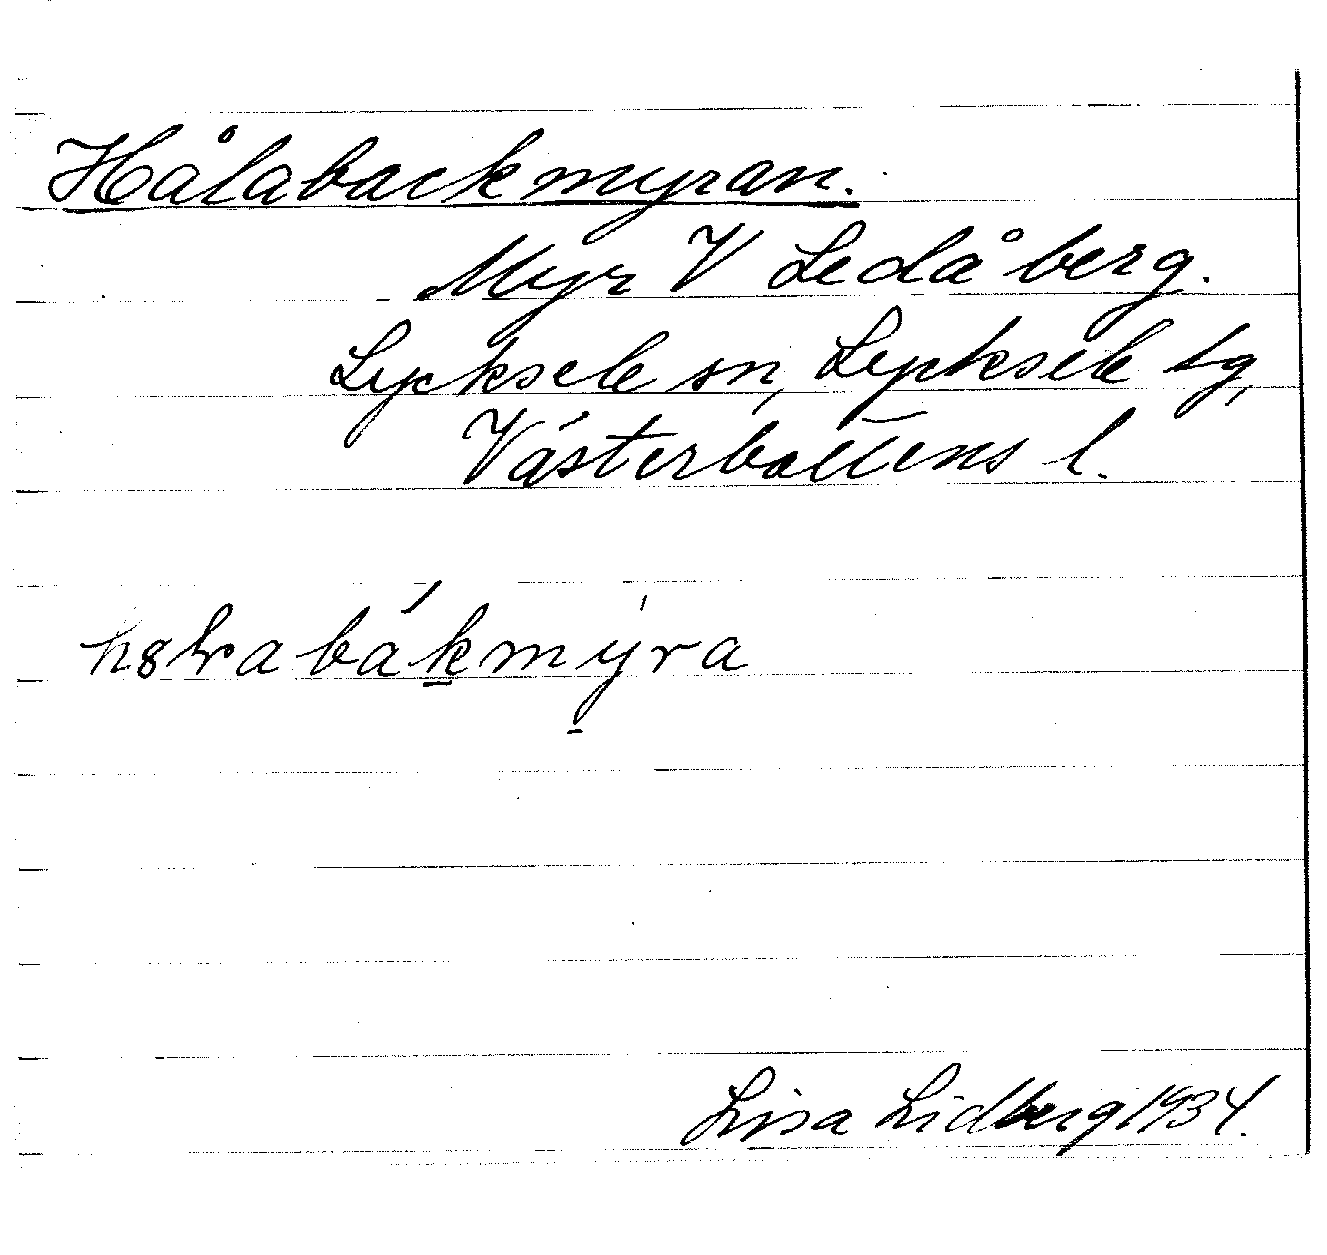 Hålabackmyran.
Myr V Ledåberg.
Lycksele sn, Lycksele tg,
Västerbottens l.
Lisa Lidberg 1934.